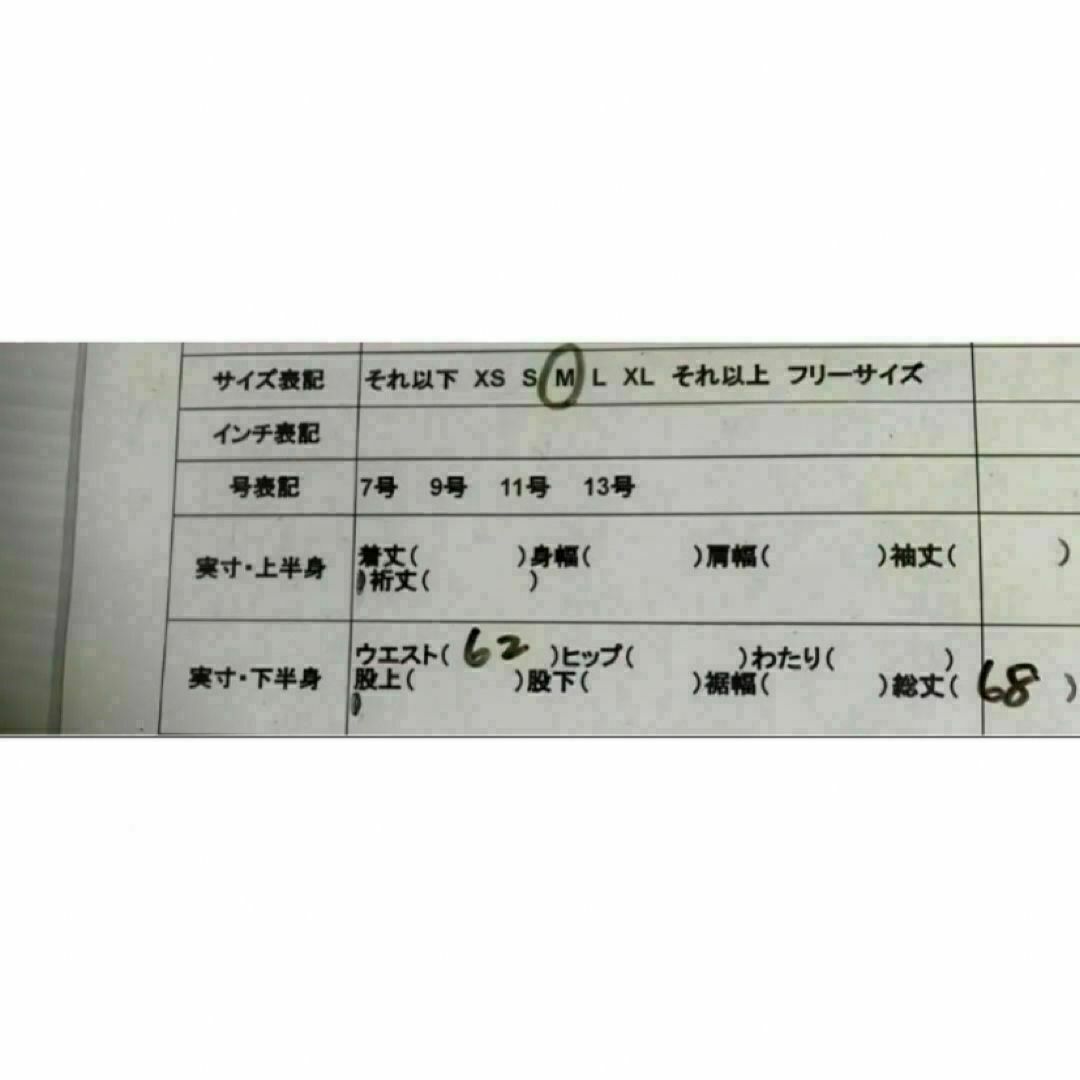 サイズ表記 それ以下 XS S M L XL それ以上 フリーサイズ
インチ表記
号表記 7号 9号 11号 13号
実寸・上半身 着丈( )身幅( )肩幅( )袖丈( )
)裄丈( )
実寸・下半身 ウエスト( 62 )ヒップ( )わたり( )
股上( )股下( )裾幅( )総丈( 68 )
)